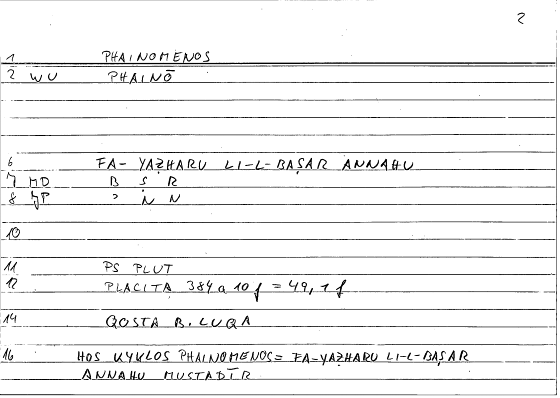 2
1 PHAINOMENOS
2 WU PHAINŌ
6 FA- YAẒHARU LI-L-BAṢAR ANNAHU
7 MD B Ṣ R
8 JP ʾ N N
10
11 PS PLUT
12 PLACITA 384 a 10 f = 49, 1 f
14 QOSTA B. LUQA
16 HOS KYKLOS PHAINOMENOS = FA-YAẒHARU LI-L-BAṢAR
ANNAHU MUSTADĪR